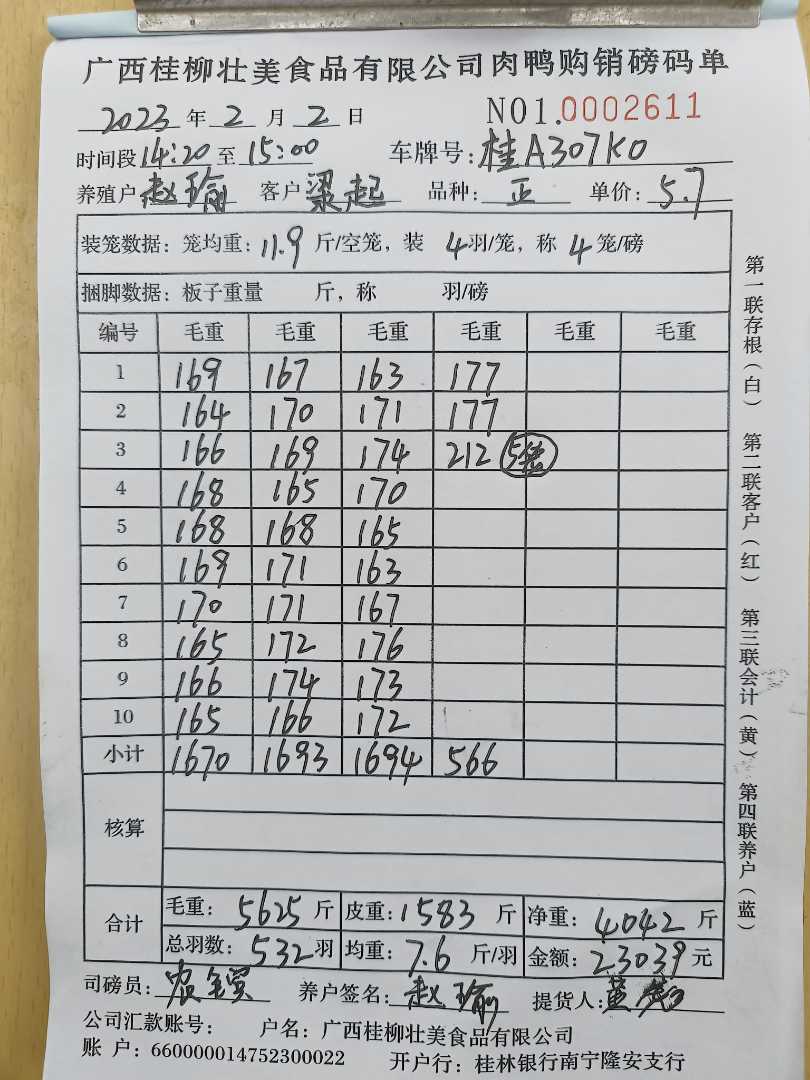 广西桂柳壮美食品有限公司肉鸭购销磅码单
2023年2月2日 NO1.0002611
时间段14:20至15:00 车牌号:桂A307K0
养殖户赵瑜 客户梁起 品种:正 单价:5.7
装笼数据:笼均重:11.9斤/空笼,装4羽/笼,称4笼/磅
捆脚数据:板子重量 斤,称 羽/磅
编号 毛重 毛重 毛重 毛重 毛重 毛重
1 169 167 163 177
2 164 170 171 177
3 166 169 174 212 5笼
4 168 165 170
5 168 168 165
6 169 171 163
7 170 171 167
8 165 172 176
9 166 174 173
10 165 166 172
小计 1670 1693 1694 566
核算
合计 毛重:5625斤 皮重:1583斤 净重:4042斤
总羽数:532羽 均重:7.6斤/羽 金额:23039元
司磅员: 养户签名:赵瑜 提货人:黄
公司汇款账号: 户名:广西桂柳壮美食品有限公司
账户:660000014752300022 开户行:桂林银行南宁隆安支行
第一联存根(白) 第二联客户(红) 第三联会计(黄) 第四联养户(蓝)